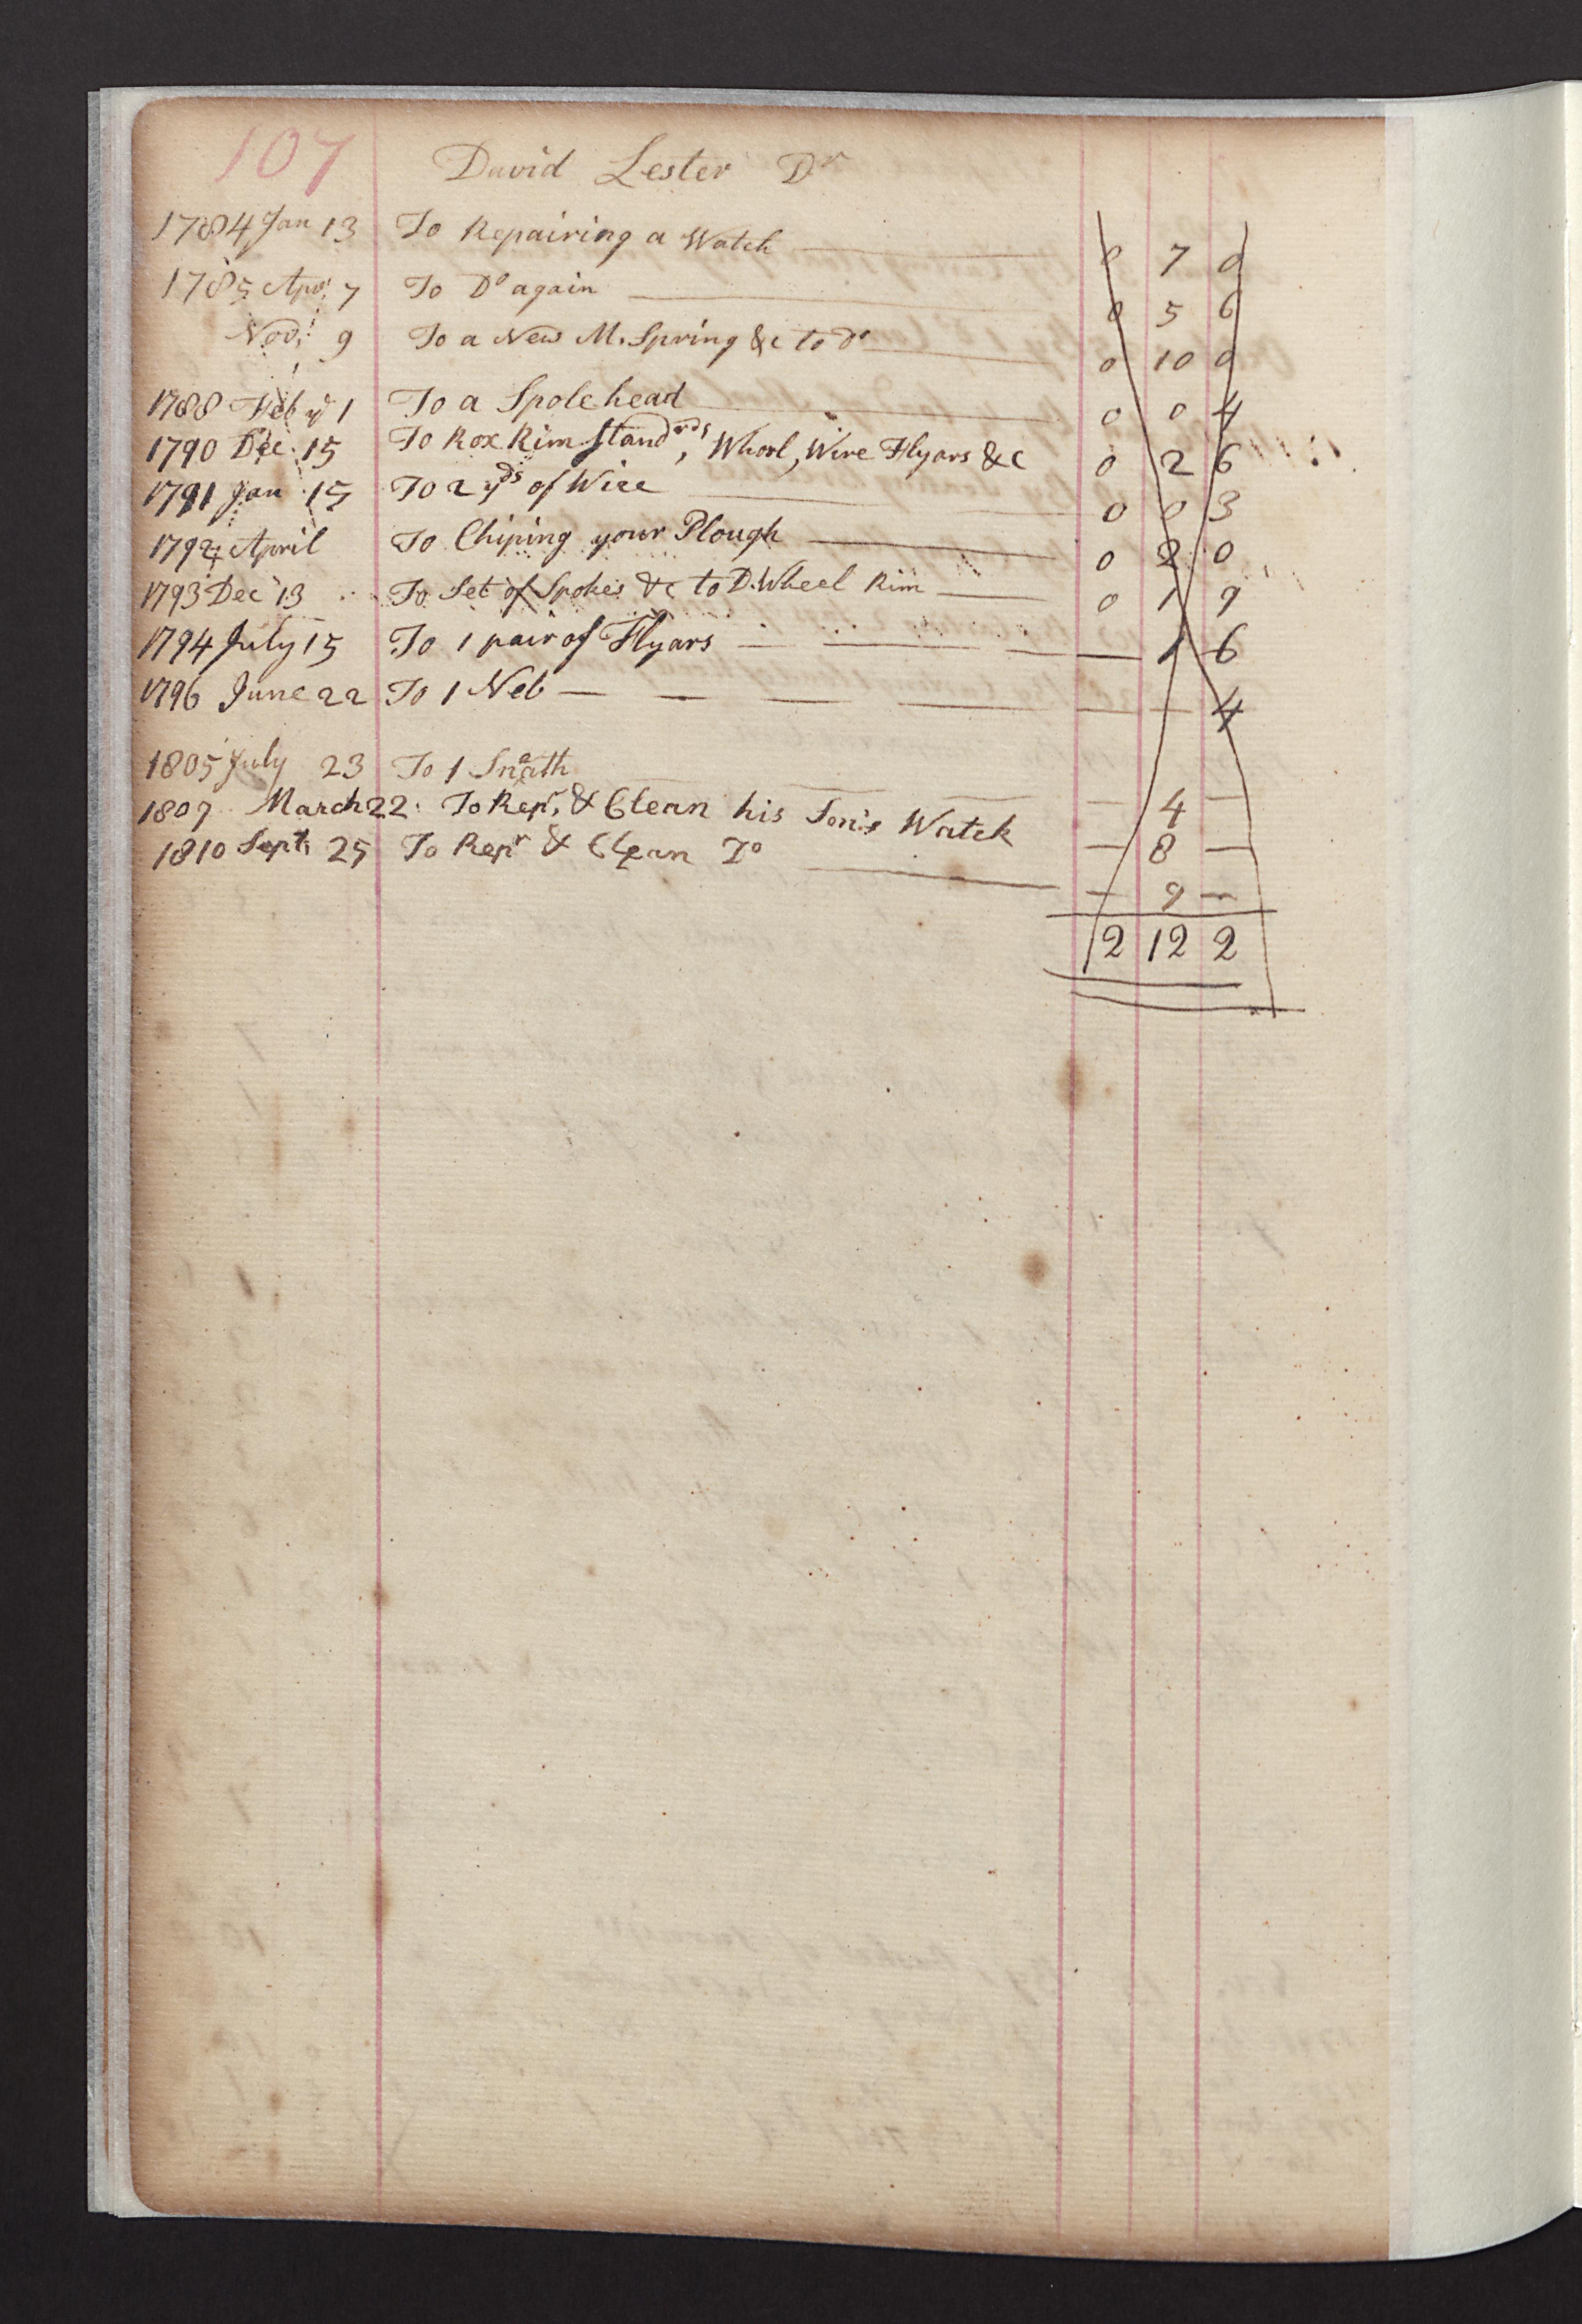 107 David Lester Dr
1784 Jan 13 To Repairing a Watch 0 7 0
1785 Apr. 7 To Do again 0 5 6
Nov. 9 To a New M. Spring &c to do 0 10 0
1788 Feb ye 1 To a Spole head 0 0 4
1790 Dec. 15 To Rox Rim Standrds, Whorl, Wire Flyars &c 0 2 6
1791 Jan 15 To 2 yds of Wire 0 0 3
1792 April To Chiping your Plough 0 2 0
1793 Dec 13 To Set of Spokes &c to D. Wheel Rim 0 1 9
1794 July 15 To 1 pair of Flyars — 1 6
1796 June 22 To 1 Neb — — 4
1805 July 23 To 1 Sneath — 4 —
1807 March 22. To Repr. & Clean his Son's Watch — 8 —
1810 Sept. 25 To Repr & Clean Do — 9 —
2 12 2